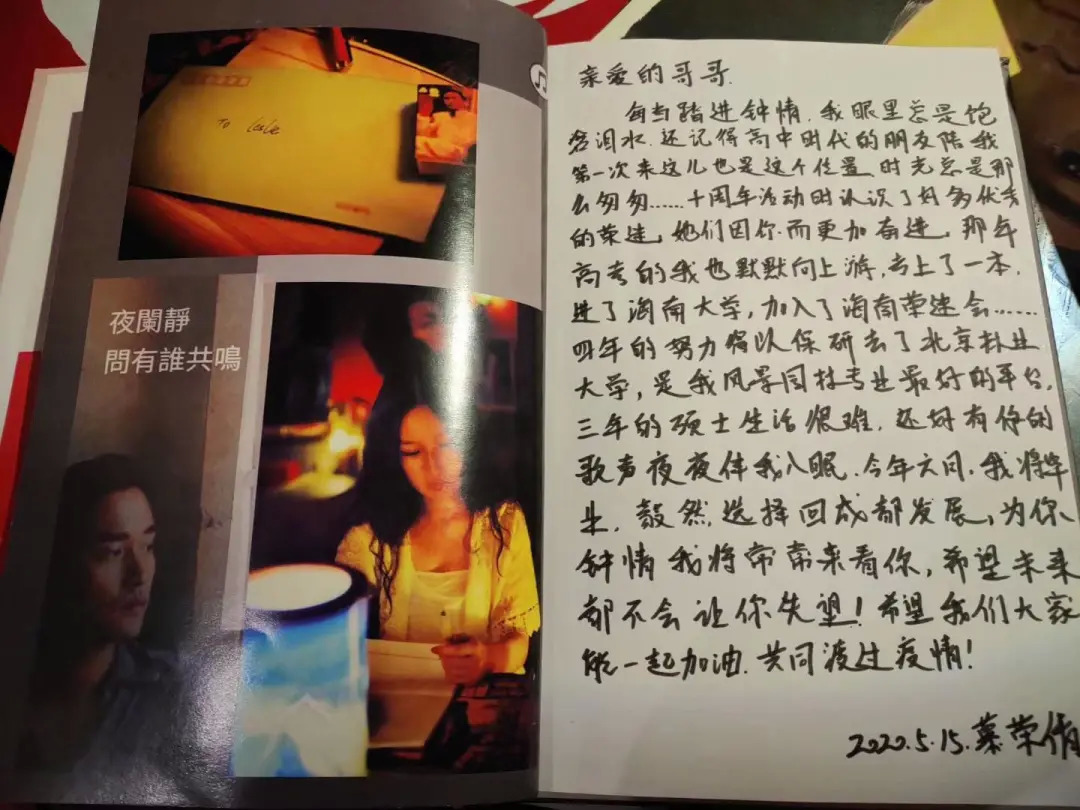 To Leslie
夜闌靜
問有誰共鳴
亲爱的哥哥.
每当踏进钟情,我眼里总是饱
含泪水.还记得高中时代的朋友陪我
第一次来这儿也是这个位置.时光总是那
么匆匆……十周年活动时认识了好多优秀
的荣迷,她们因你而更加奋进,那年
高考的我也默默向上游,考上了一本,
进了海南大学,加入了海南荣迷会……
四年的努力得以保研去了北京林业
大学,是我风景园林专业最好的平台,
三年的硕士生活很难,还好有你的
歌声夜夜伴我入眠.今年六月,我将毕
业,毅然选择回成都发展,为你
钟情我将常常来看你,希望未来
都不会让你失望!希望我们大家
能一起加油.共同渡过疫情!
2020.5.15.荣倩